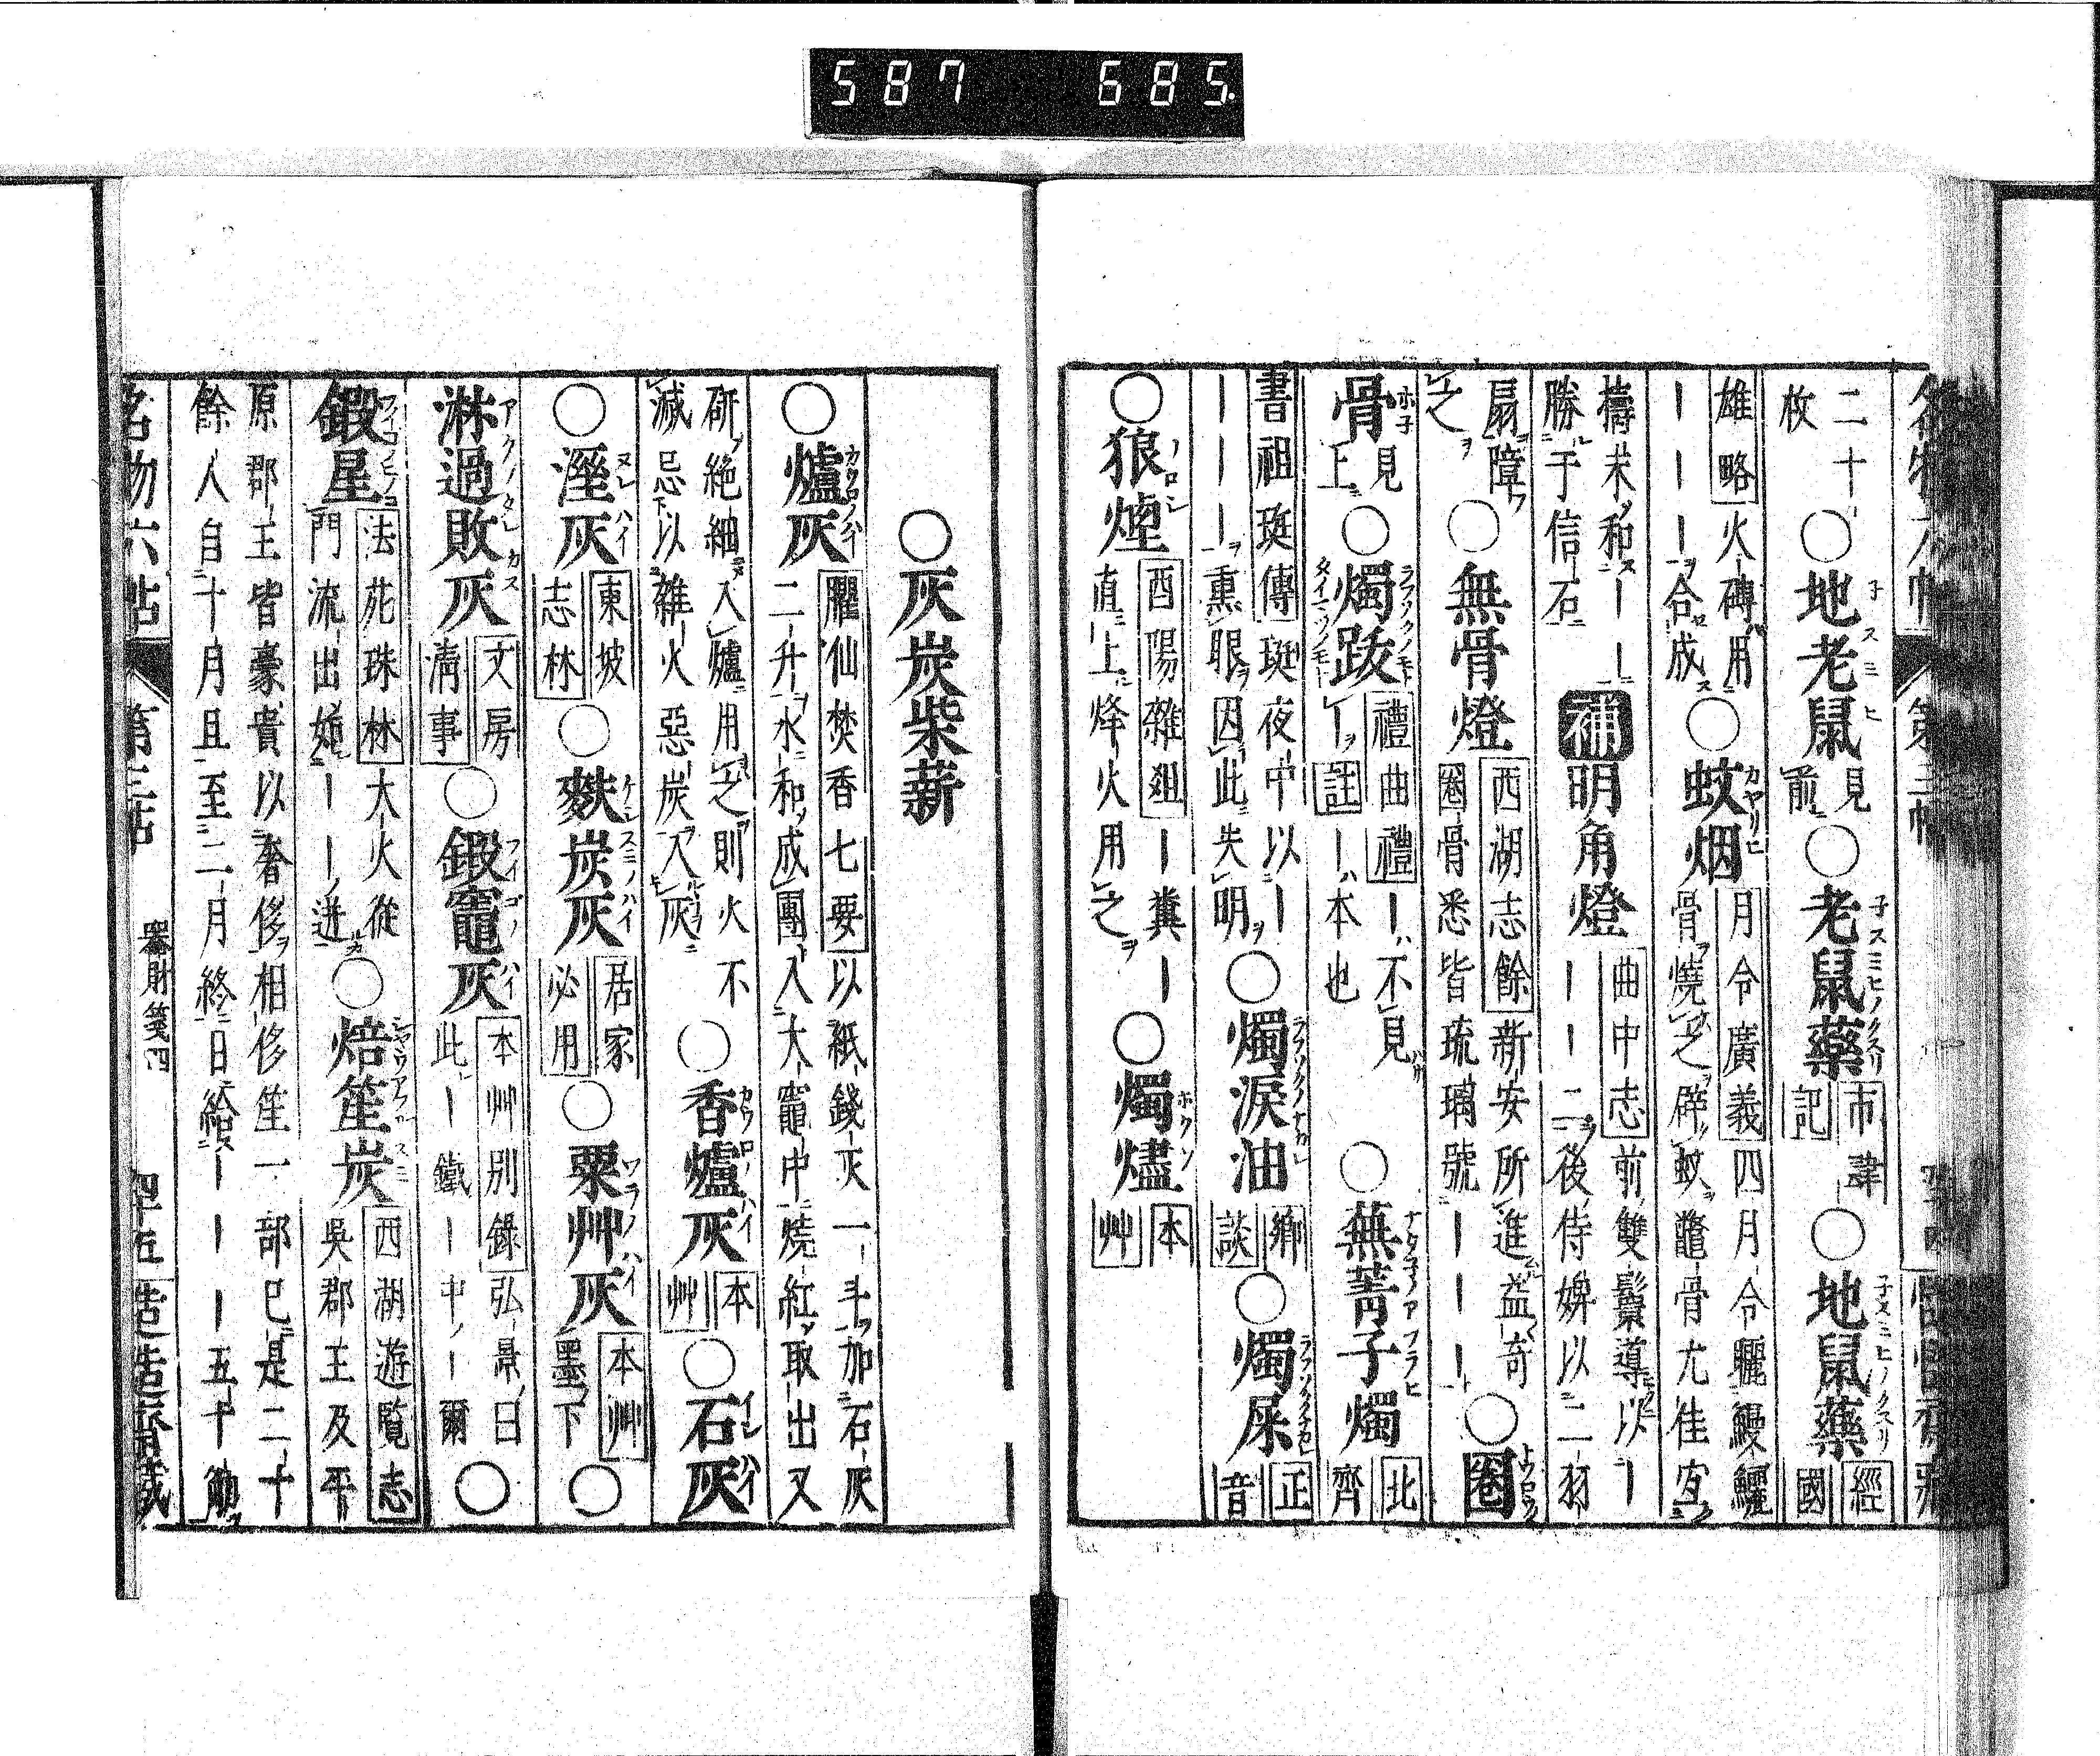 587 685.
二十
枚
○地老鼠 見
前
○老鼠藥 市諱
記
○地鼠藥 經
國
雄略 火磚用
ーーーー合成
○蚊烟 月令廣義 四月令曬鰻鱺
骨燒之辟蚊鼈骨尤佳
擣末和ーー
勝于信石
補 明角燈 曲中志 前雙鬟導以ー
ーー二後侍婢以二羽
扇障
之
○無骨燈 西湖志餘 新安所進益奇
圈骨悉皆琉璃號ーーー
○圈
骨 見
上
○燭跋 禮曲禮 ー不見
ー註ー本也
○蕪菁子燭 北
齊
書祖珽傳 珽夜中以ー
ーーーー熏眼因此失明
○燭淚油 鄉
談
○燭屎 正
音
○狼煙 酉陽雜俎 ー糞ー
直上烽火用之
○燭燼 本
艸
○灰炭柴薪
○爐灰 臞仙焚香七要 以紙錢灰一斗加石灰
二升水和成團入大竈中燒紅取出又
研絶細入爐用之則火不
滅忌以雜火惡炭入灰
○香爐灰 本
艸
○石灰
○溼灰 東坡
志林
○麩炭灰 居家
必用
○粟艸灰 本艸
墨下
○
淋過敗灰 文房
清事
○鍛竈灰 本艸別錄 弘景曰
此ー鐵ー中ー爾
○
鍛星 法苑珠林 大火從
門流出如ーー迸
○焙笙炭 西湖遊覧志
吳郡王及平
原郡王皆豪貴以奢侈相侈笙一部已是二十
餘人自十月且至二月終日給ーーー五十觔
名物六帖 第三帖 器財箋四 四十五